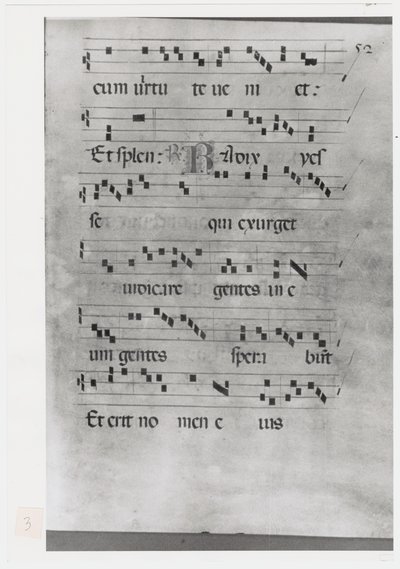 52
cum uirtu te ue ni et:
Et splen: R. Radix yes
se qui exurget
iudicare gentes in e
um gentes spera bunt
Et erit no men e ius
3